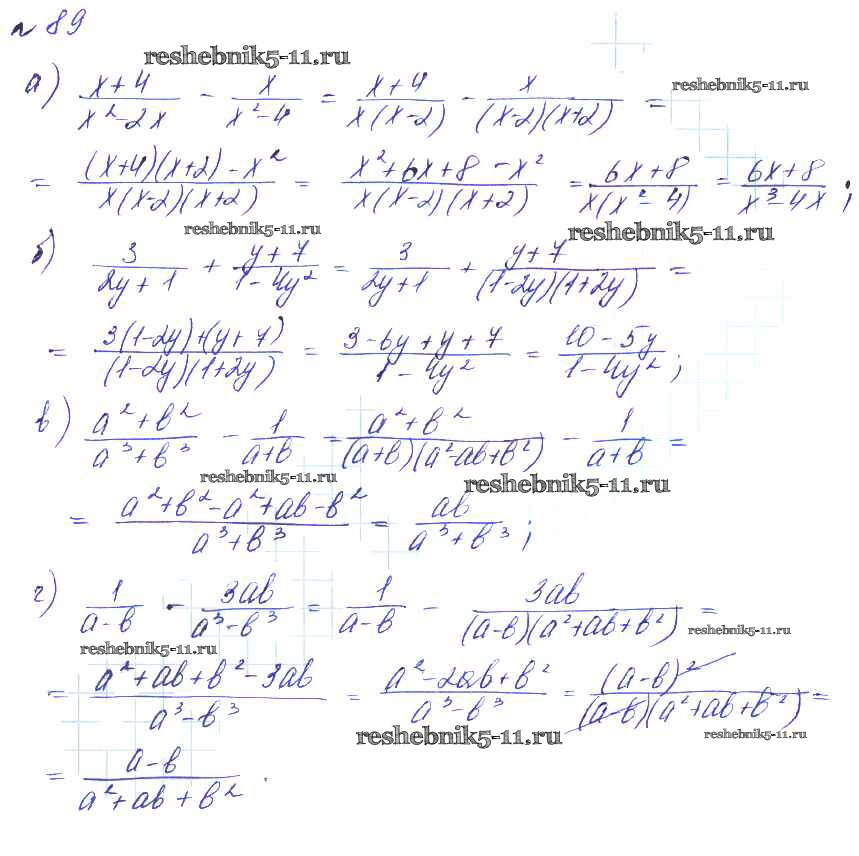 № 89
reshebnik5-11.ru
а) (x+4)/(x²-2x) - x/(x²-4) = (x+4)/(x(x-2)) - x/((x-2)(x+2)) =
reshebnik5-11.ru
= ((x+4)(x+2)-x²)/(x(x-2)(x+2)) = (x²+6x+8-x²)/(x(x-2)(x+2)) = (6x+8)/(x(x²-4)) = (6x+8)/(x³-4x);
reshebnik5-11.ru reshebnik5-11.ru
б) 3/(2y+1) + (y+7)/(1-4y²) = 3/(2y+1) + (y+7)/((1-2y)(1+2y)) =
= (3(1-2y)+(y+7))/((1-2y)(1+2y)) = (3-6y+y+7)/(1-4y²) = (10-5y)/(1-4y²);
в) (a²+b²)/(a³+b³) - 1/(a+b) = (a²+b²)/((a+b)(a²-ab+b²)) - 1/(a+b) =
reshebnik5-11.ru reshebnik5-11.ru
= (a²+b²-a²+ab-b²)/(a³+b³) = ab/(a³+b³);
г) 1/(a-b) - 3ab/(a³-b³) = 1/(a-b) - 3ab/((a-b)(a²+ab+b²)) =
reshebnik5-11.ru reshebnik5-11.ru
= (a²+ab+b²-3ab)/(a³-b³) = (a²-2ab+b²)/(a³-b³) = (a-b)²/((a-b)(a²+ab+b²)) =
reshebnik5-11.ru reshebnik5-11.ru
= (a-b)/(a²+ab+b²).